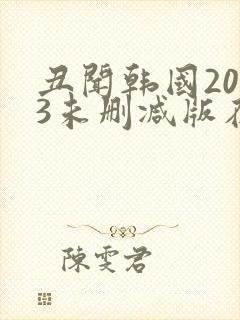 丑闻韩国20
3未删减版在
陈雯君